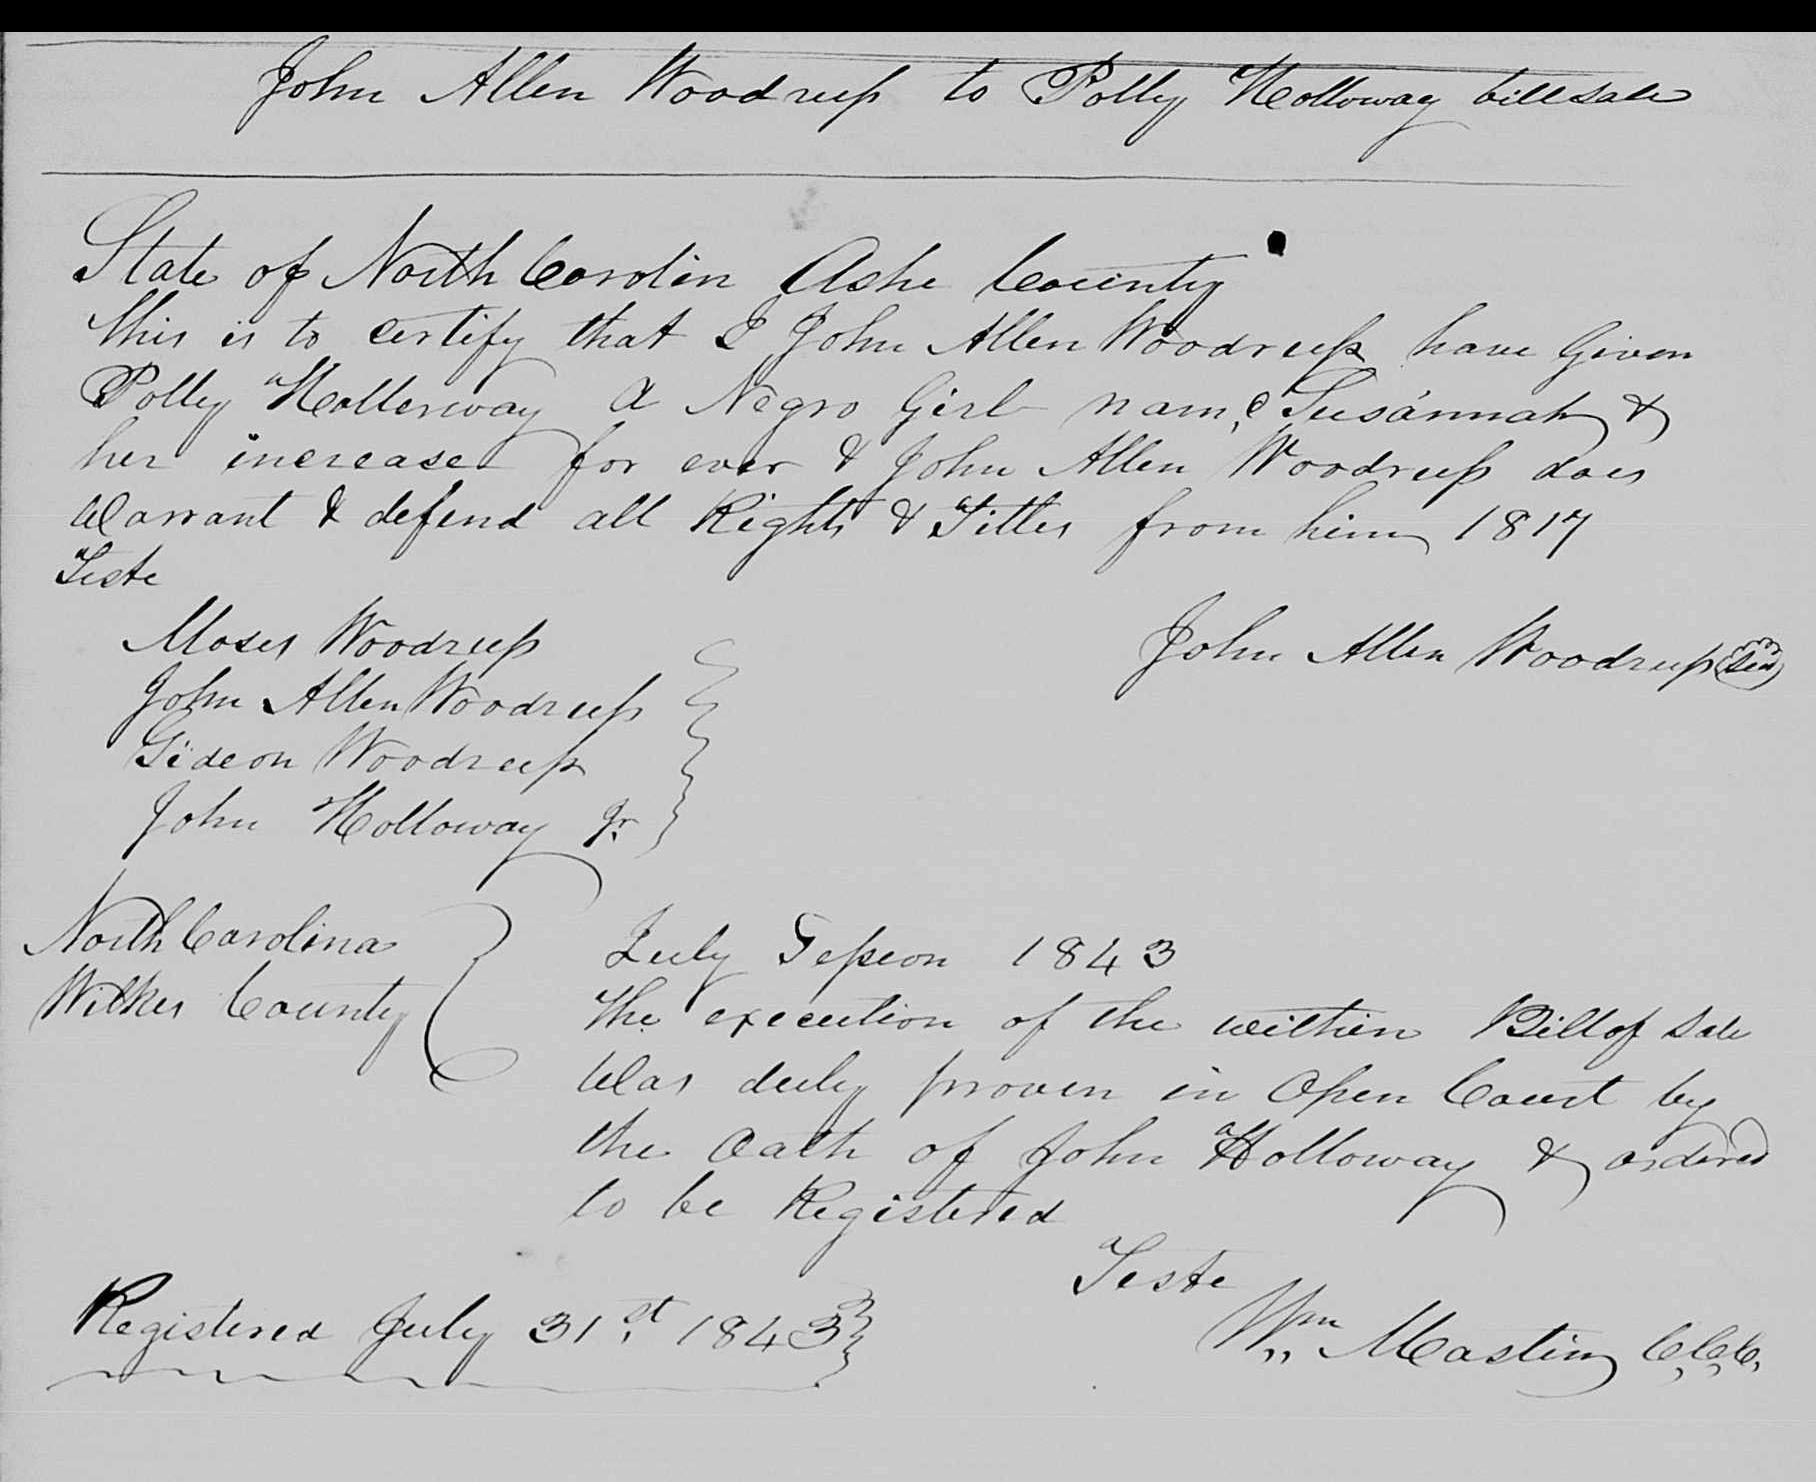 John Allen Woodruff to Polly Holloway bill sale
State of North Carolin Ashe County
this is to certify that I John Allen Woodruff have Given
Polly Hollerway A Negro Girl name Susannah &
her increase for ever & John Allen Woodruff does
Warrant & defend all Rights & Titles from him 1817
Teste
Moses Woodruff
John Allen Woodruff
Gideon Woodruff
John Holloway Jr.
John Allen Woodruff
North Carolina
Wilkes County
July Session 1843
The execution of the within Bill of Sale
Was duly proven in Open Court by
the Oath of John Holloway & ordered
to be Registered
Teste
Wm Mastin C,C,C,
Registered July 31st 1843